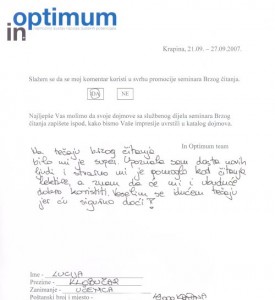 in optimum
Krapina, 21.09. - 27.09.2007.
Slažem se da se moj komentar koristi u svrhu promocije seminara Brzog čitanja.
DA NE
Najljepše Vas molimo da svoje dojmove za službenog dijela seminara Brzog
čitanja zapišete ispod, kako bismo Vaše impresije uvrstili u katalog dojmova.
In Optimum team
Na tečaju brzog čitanja
bilo mi je super. Upoznala sam dosta novih
ljudi i strašno mi je pomoglo kod čitanja
lektire, a znam da će mi i u buduće
dobro koristiti. Veselim se idućem tečaju
jer ću sigurno doći!
Ime - LUCIJA
Prezime - KLOBUČAR
Zanimanje - UČENICA
Poštanski broj i mjesto - KRAPINA